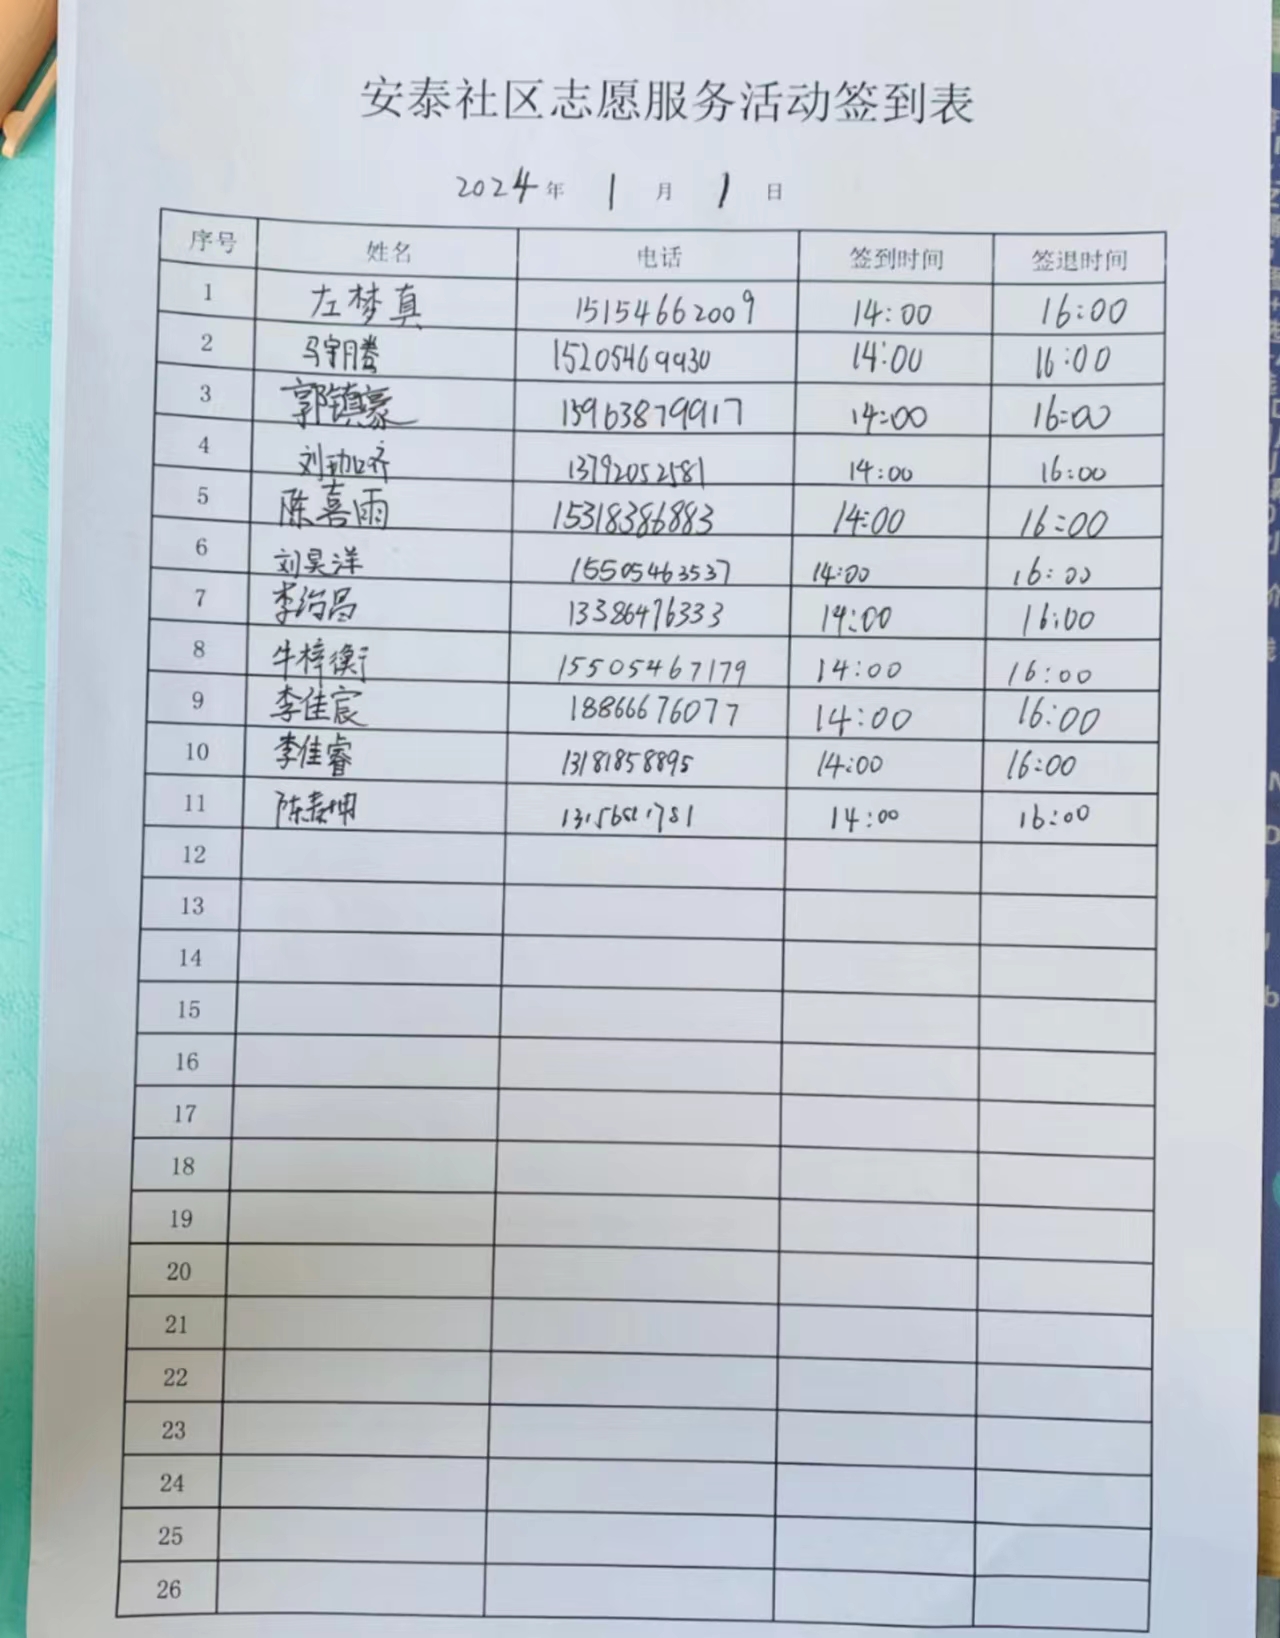 安泰社区志愿服务活动签到表
2024年 1月 1日
序号 姓名 电话 签到时间 签退时间
1 左梦真 15154662009 14:00 16:00
2 马宇腾 15205469930 14:00 16:00
3 郭镇豪 15963879917 14:00 16:00
4 刘 13792052581 14:00 16:00
5 陈喜雨 15318386883 14:00 16:00
6 刘昊洋 15505463537 14:00 16:00
7 李治昌 13386476333 14:00 16:00
8 牛梓衡 15505467179 14:00 16:00
9 李佳宸 18866676077 14:00 16:00
10 李佳睿 13181858895 14:00 16:00
11 陈 14:00 16:00
12
13
14
15
16
17
18
19
20
21
22
23
24
25
26